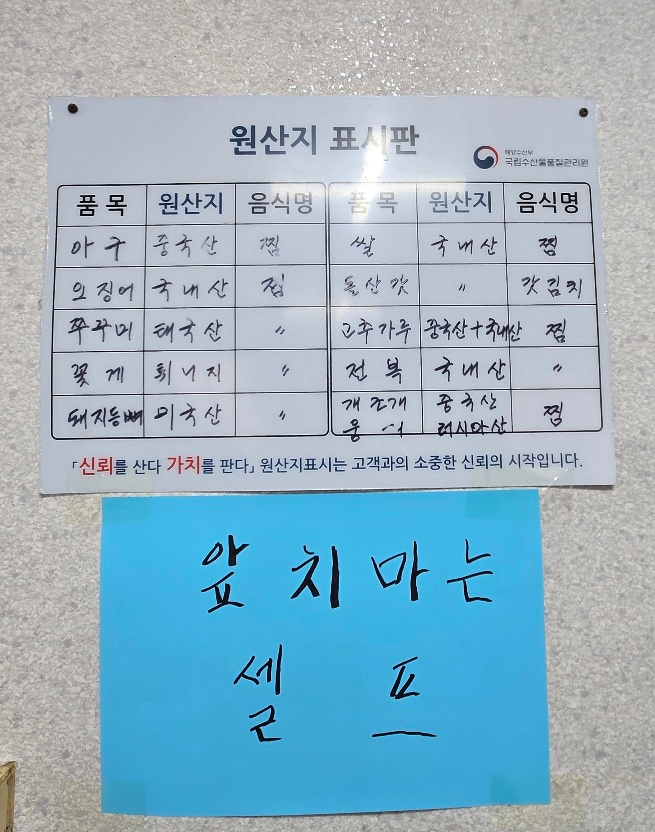 원산지 표시판
해양수산부
국립수산물품질관리원
품목 원산지 음식명 품목 원산지 음식명
아구 중국산 찜 쌀 국내산 찜
오징어 국내산 찜 돌산갓 〃 갓김치
쭈꾸미 태국산 〃 고추가루 중국산+국내산 찜
꽃게 튀니지 〃 전복 국내산 〃
돼지등뼈 미국산 〃 개조개 중국산 찜
러시아산
「신뢰를 산다 가치를 판다」 원산지표시는 고객과의 소중한 신뢰의 시작입니다.
앞치마는
셀프